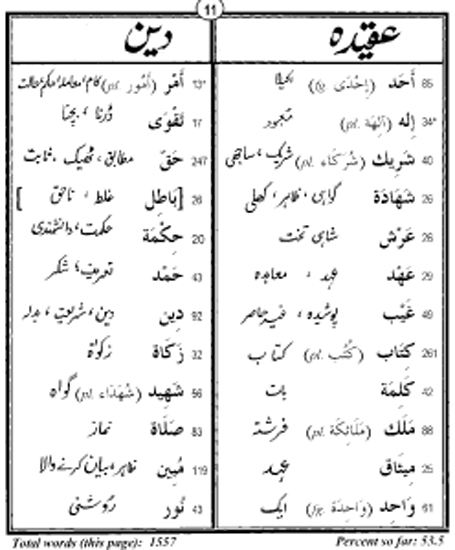 11
عقیدہ
85 أَحَد (إِحْدَى fg) یکتا
34* إِلٰه (آلِهَة pl.) معبود
40 شَرِيك (شُرَكَاء pl.) شریک، ساجھی
26 شَهَادَة گواہی، ظاہر، کھلی
26 عَرْش شاہی تخت
29 عَهْد عہد، معاہدہ
49 غَيْب پوشیدہ، غیر حاضر
261 كِتَاب (كُتُب pl.) کتاب
42 كَلِمَة بات
88 مَلَك (مَلَائِكَة pl.) فرشتہ
25 مِيثَاق عہد
61 وَاحِد (وَاحِدَة fg.) ایک
دین
13* أَمْر (أُمُور pl.) کام، معاملہ، حکم، حالت
17 تَقْوَى ڈرنا، بچنا
247 حَقّ مطابق، ٹھیک، ثابت
26 [بَاطِل غلط، ناحق]
20 حِكْمَة حکمت، دانشمندی
43 حَمْد تعریف، شکر
92 دِين دین، شریعت، بدلہ
32 زَكَاة زکوٰۃ
56 شَهِيد (شُهَدَاء pl.) گواہ
83 صَلَاة نماز
119 مُبِين ظاہر، بیان کرنے والا
43 نُور روشنی
Total words (this page): 1557
Percent so far: 53.5